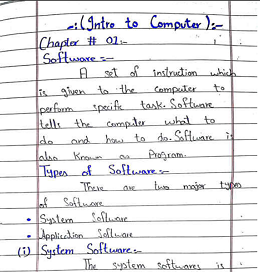 -:(Intro to Computer):-
Chapter # 01:-
Software:-
A set of instruction which
is given to the computer to
perform specific task. Software
tells the computer what to
do and how to do. Software is
also known as Program.
Types of Software:-
There are two major types
of Software
• System Software
• Application Software
(i) System Software:-
The system softwares is